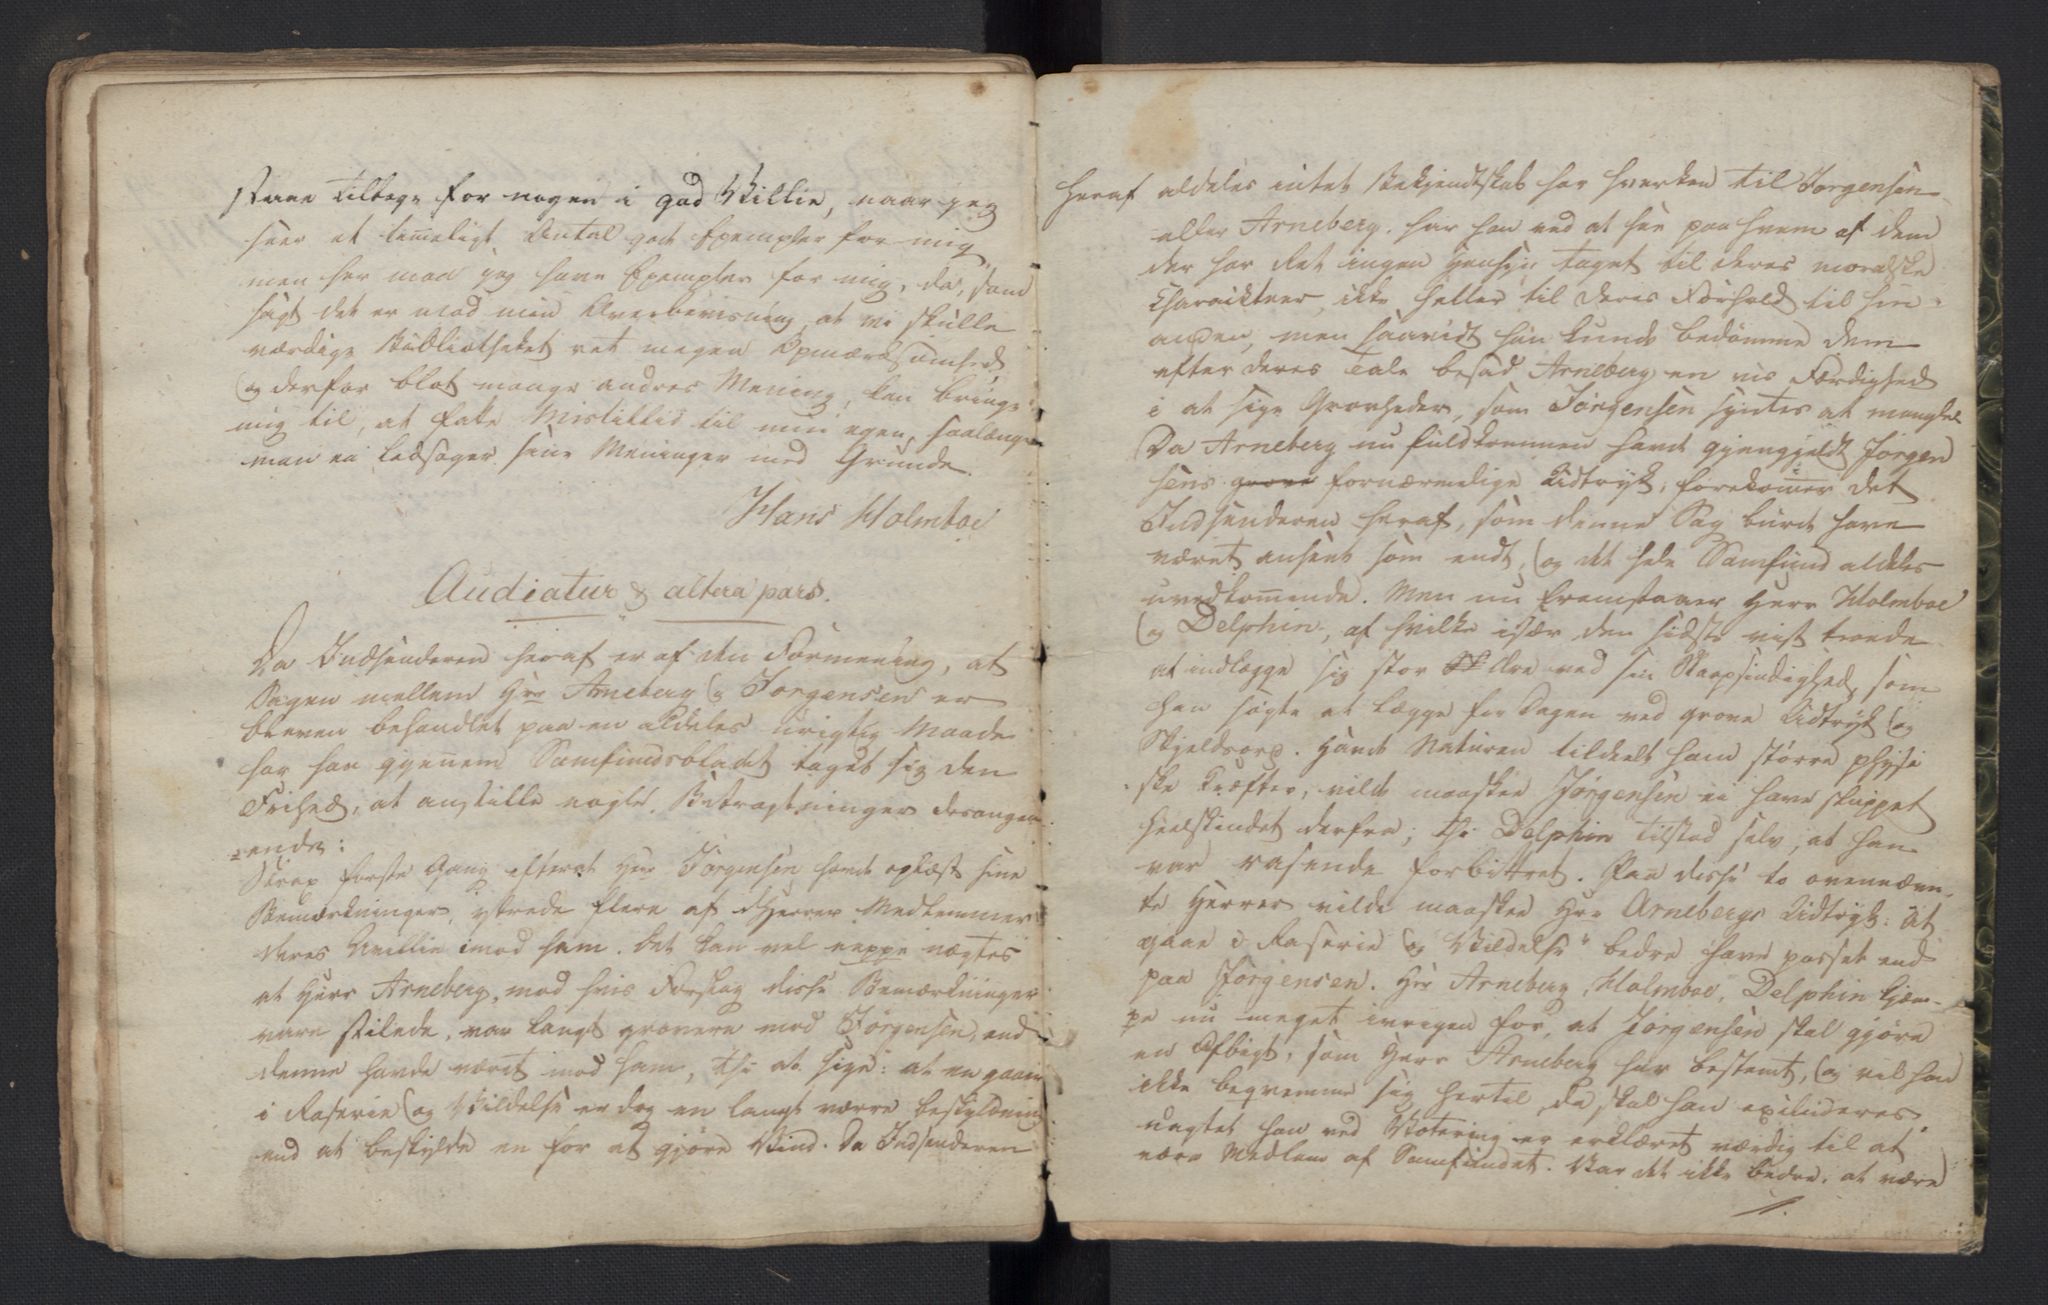 staae tilbage for nogen i god Villie, naar jeg
seer et temeligt Antal gode Exempler for mig
men her maa jeg have Exempler for mig, da, som
sagt det er mod min Overbeviisning, at vi skulle
værdige Bibliotheket ret megen Opmærksomhed
og derfor blot mange andres Mening, kan bringe
mig til, at fatte Mistillid til min egen, saalænge
man ei ledsager sine Meninger med Grunde.
Hans Holmboe
Audiatur & altera pars.
Da Indsenderen heraf er af den Formening, at
Sagen mellem Hrr Arneberg og Jørgensen er
bleven behandlet paa en aldeles urigtig Maade
har han gjennem Samfundsbladet taget sig den
Frihed, at anstille nogle Betragtninger desangaa-
ende:
Strax første Gang efterat Herr Jørgensen havde oplæst sine
Bemærkninger, yttrede flere af Herrer Medlemmer
deres Uvillie imod ham. Det kan vel neppe nægtes
at Herr Arneberg, mod hvis Forslag disse Bemærkninger
vare stilede, var langt grovere mod Jørgensen, end
denne havde været mod ham, thi at sige: at en gaaer
i Raserie og Vildelse er dog en langt værre beskyldning
end at beskylde en for at gjøre Vind. Da Indsenderen
heraf aldeles intet Bekjendtskab har hverken til Jørgensen
eller Arneberg, har han ved at see paa hvem af dem
der har Ret ingen Hensyn taget til deres moralske
Charakteer, ikke heller til deres Forhold til hin-
anden, men saavidt han kunde bedømme dem
efter deres Tale besad Arneberg en vis Færdighed
i at sige Grovheder, som Jørgensen syntes at mangle.
Da Arneberg nu fuldkommen havde gjengjeldt Jørgen
sens grove fornærmelige Udtryk, forekommer det
Indsenderen heraf, som denne Sag burde have
været anseet som endt, og det hele Samfund aldeles
uvedkommende. Men nu fremstaaer Herr Holmboe
og Delphin, af hvilke især den sidste vist troede
at indlægge sig stor Ære ved sin Skarpsindighed, som
han søgte at lægge for Dagen ved grove Udtryk og
Skjeldsord. Havde Naturen tildeelt ham større physi
ske Kræfter, vilde maaskee Jørgensen ei have sluppet
heelskindet derfra; thi Delphin tilstod selv, at han
var rasende forbittret. Paa disse to ovennævn-
te Herrer vilde maaskee Hrr Arnebergs Udtryk: "at
gaae i Raserie og Vildelse" bedre have passet end
paa Jørgensen. Hrr Arneberg, Holmboe, Delphin kjæm-
pe nu meget ivrigen for, at Jørgensen skal gjøre
en Afbigt, som Herr Arneberg har bestemt, og vil han
ikke beqvemme sig hertil, da skal han excluderes
uagtet han ved Votering er erklæret værdig til at
være Medlem af Samfundet. Var det ikke bedre, at være